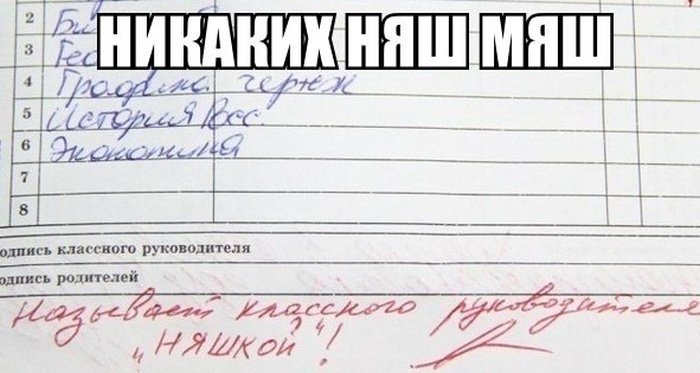 НИКАКИХ НЯШ МЯШ
2
3 Гео
4 Графика чертеж
5 История Росс
6 Экономика
7
8
одпись классного руководителя
одпись родителей
Называет классного руководителя
„НЯШКОЙ“!